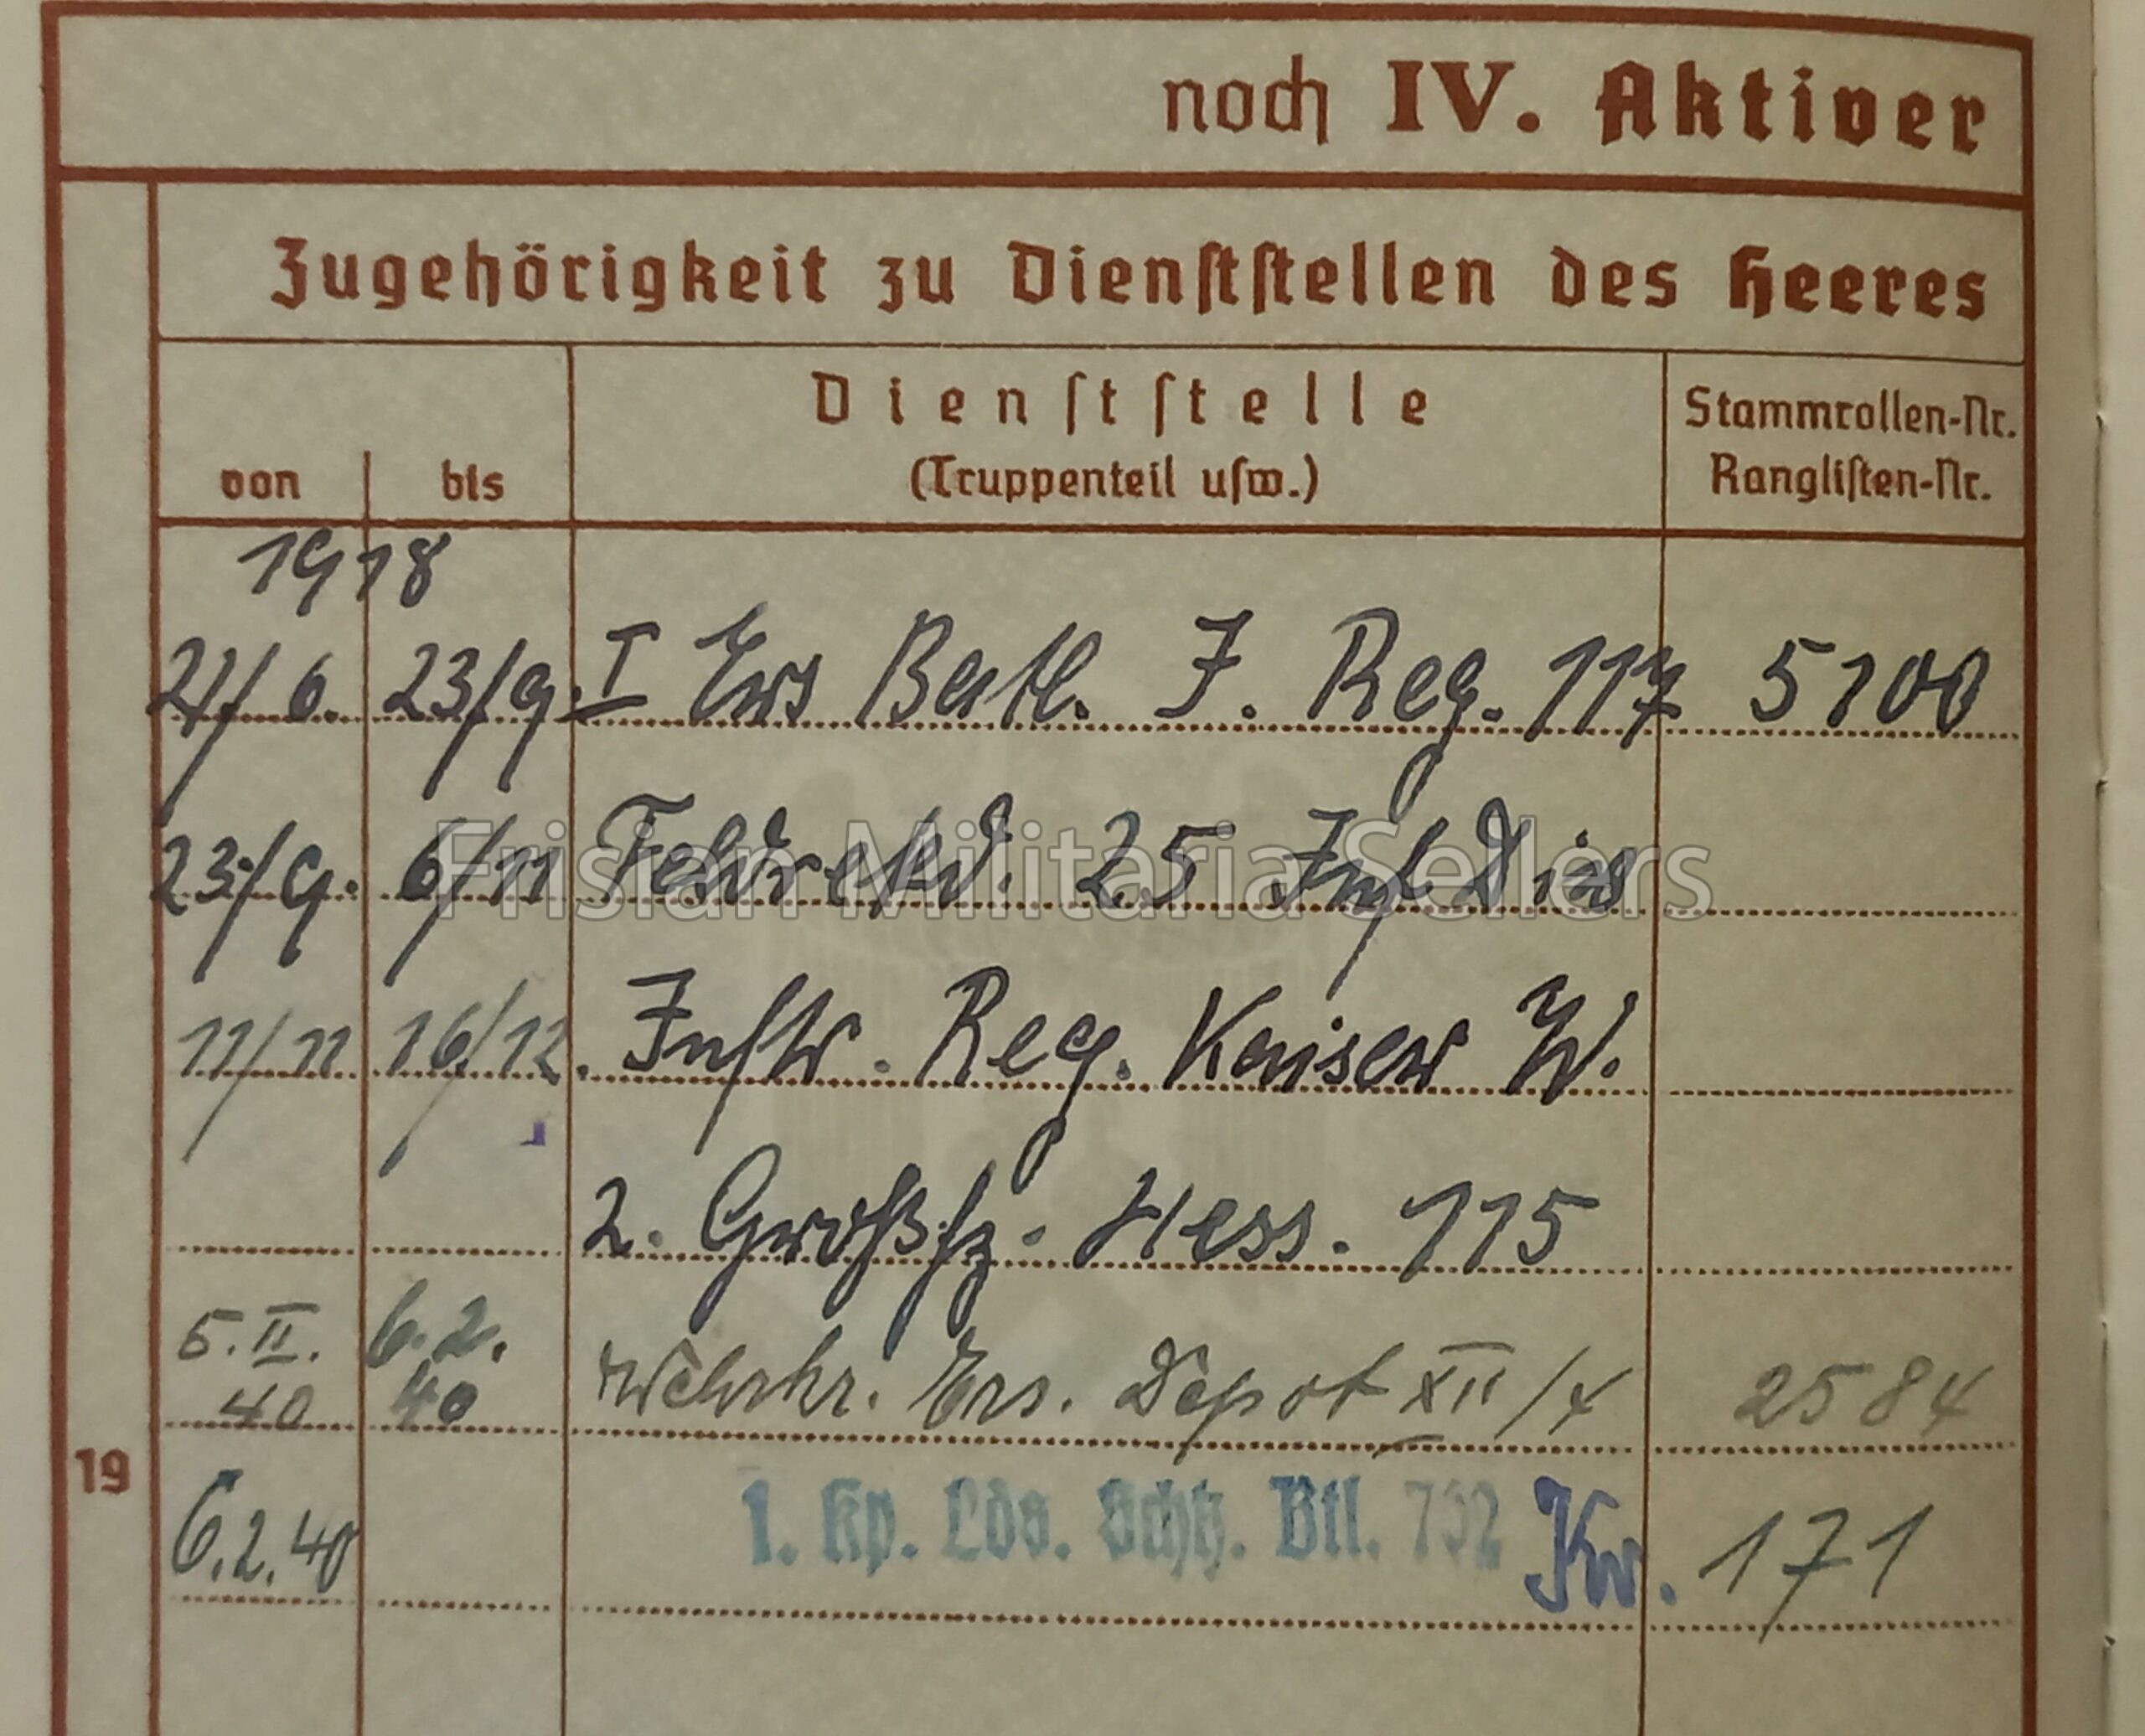 noch IV. Aktiver
Zugehörigkeit zu Dienststellen des Heeres
von bis Dienststelle (Truppenteil usw.) Stammrollen-Nr. Ranglisten-Nr.
1918
21/6. 23/9. I Ers Batl. J. Reg. 117 5100
23./9. 6/11 Feldrekrd. 25 Inf Div
Frisian Militaria Sellers
11/11 16/12. Inftr. Reg. Kaiser W.
2. Großhz. Hess. 115
5.II. 40 6.2. 40 Wehrkr. Ers. Depot XII/X 2584
19
6.2.40 1. Kp. Lds. Schtz. Btl. 732 Kr. 171